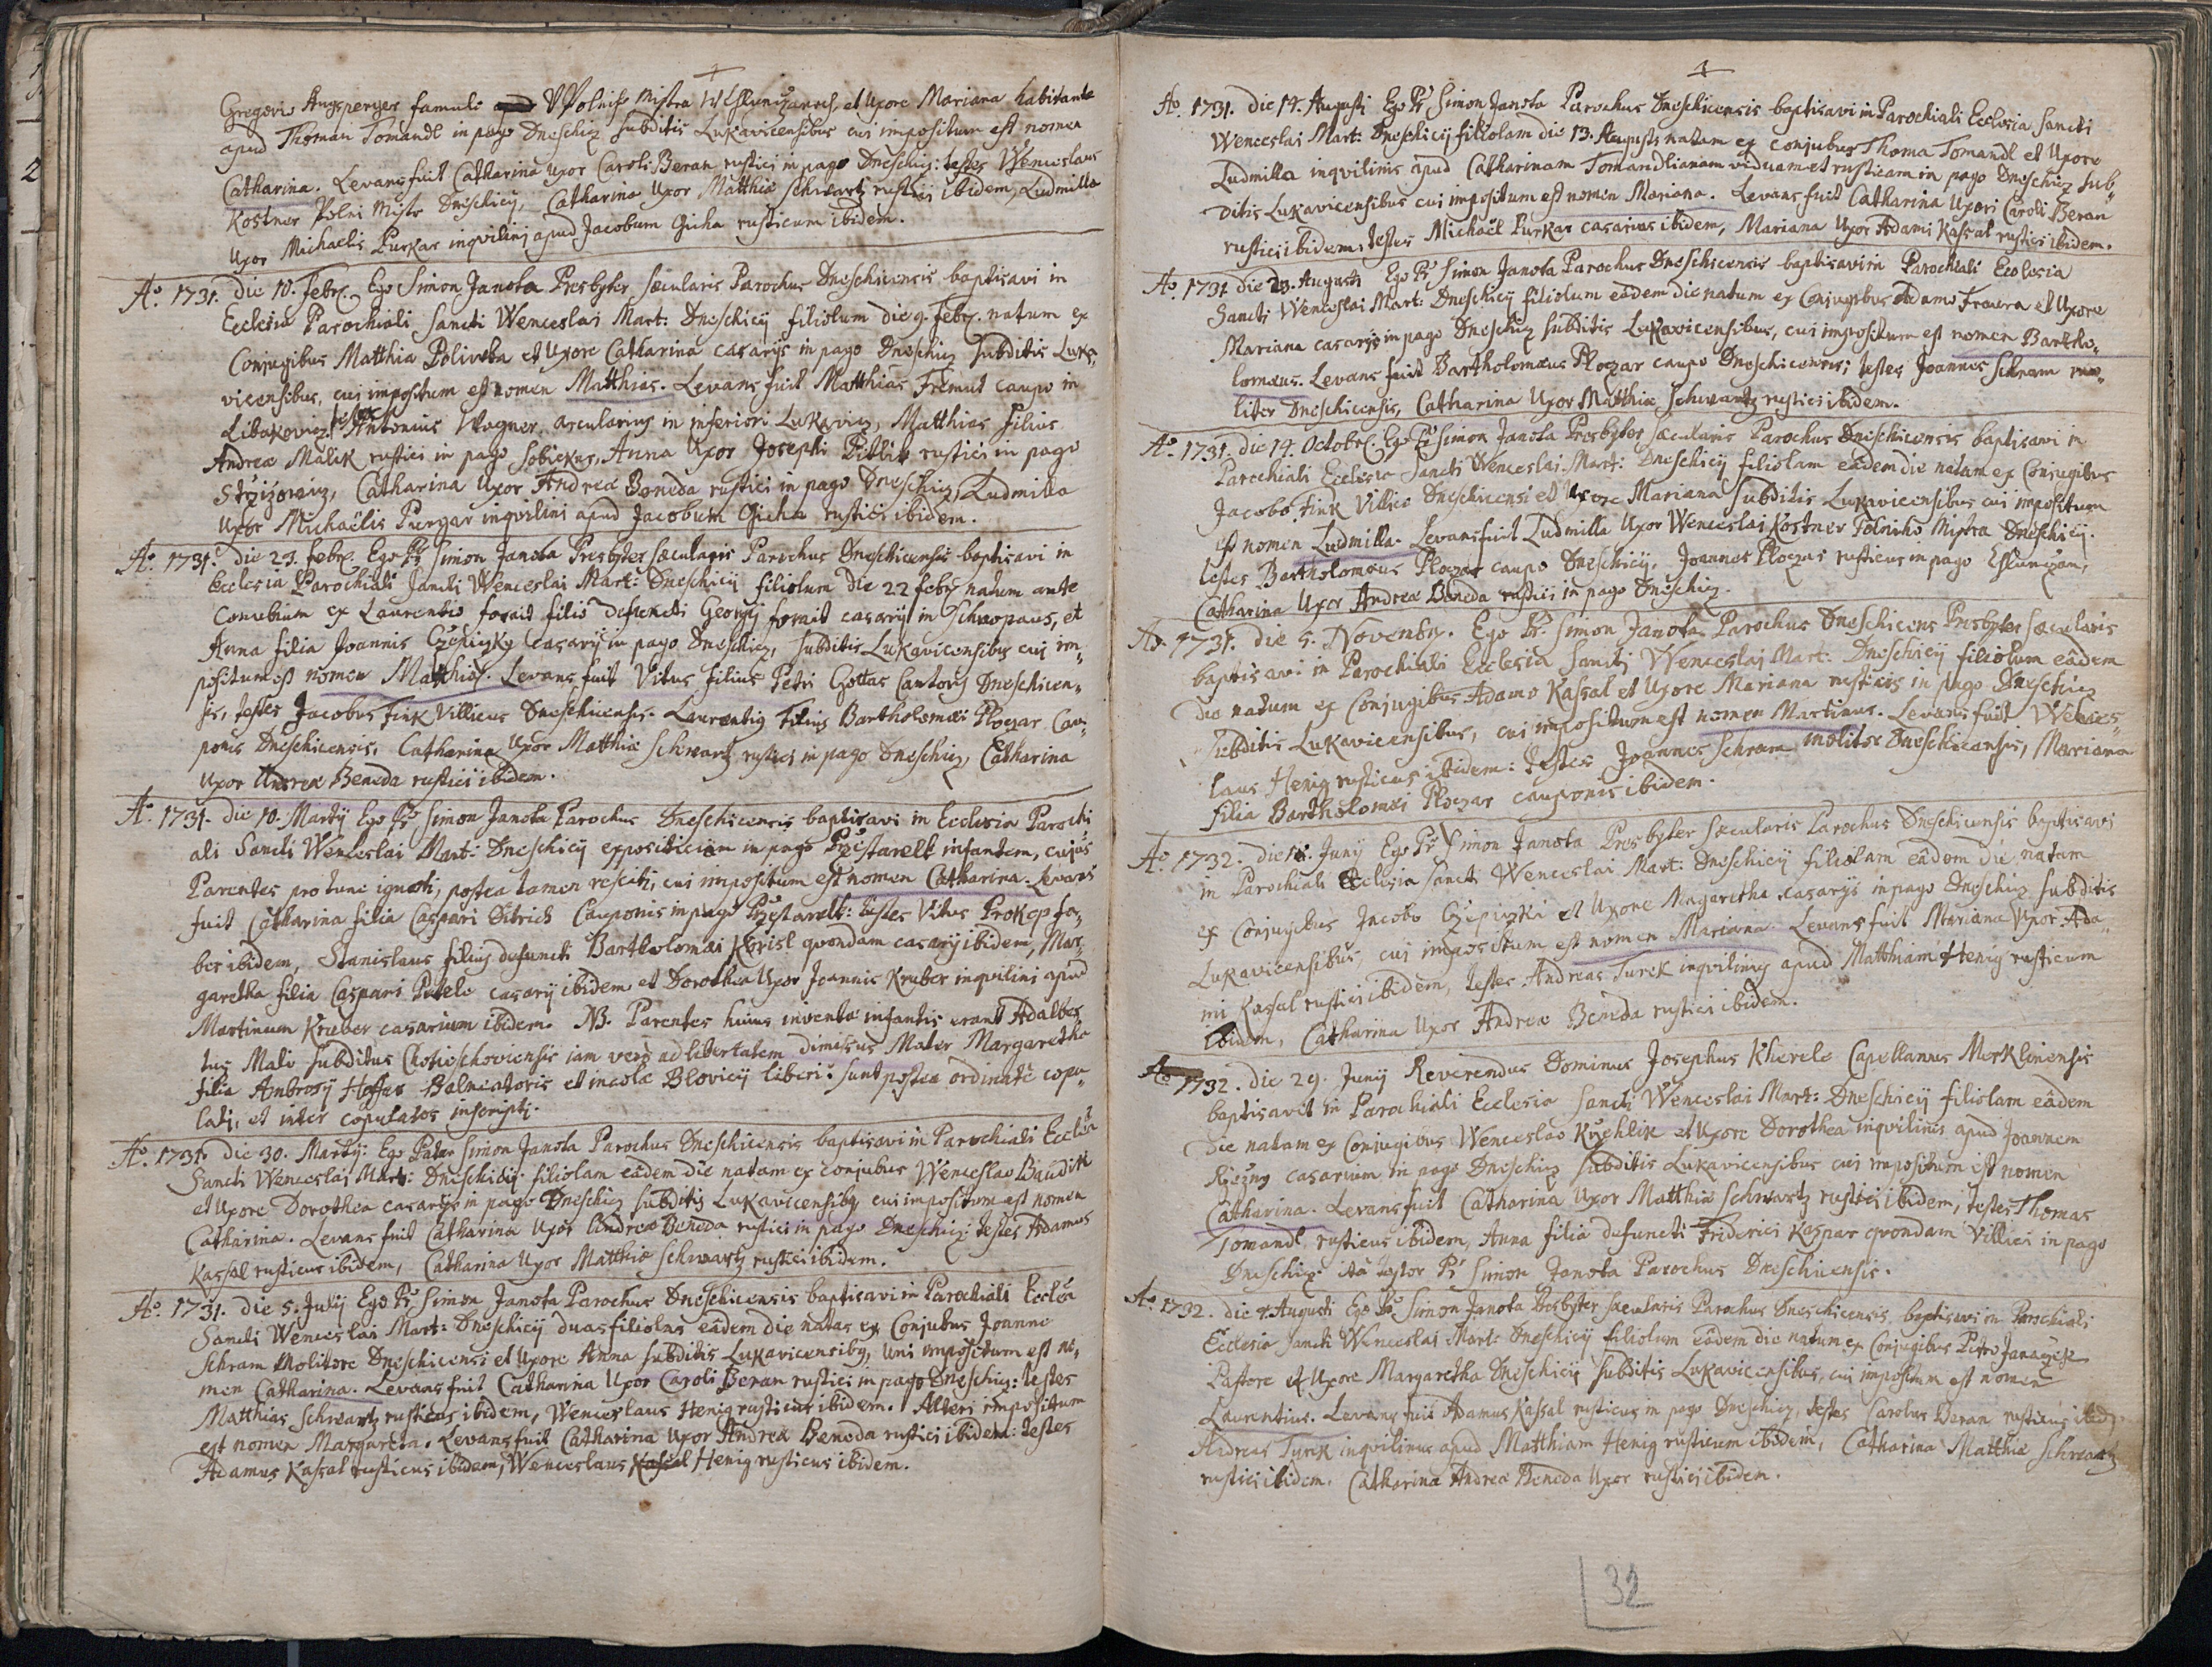 Gregorio Angsperger famulo Polniho Mistra W Eſſlunczanech, et Uxore Mariana habitante
apud Thomam Tomandl in pago Dneschicz subditis Lukavicensibus cui impositum est nomen
Catharina. Levans fuit Catharina Uxor Caroli Beran rustici in pago Dneschicz: testes Wenceslaus
Kostner Polni Mistr Dneschicij, Catharina Uxor Matthiæ Schwartz rustici ibidem, Ludmilla
Uxor Michaelis Purkar inqvilini apud Jacobum Giha rusticum ibidem.
Aº. 1731. die 10. Febr. Ego Simon Janota Presbyter sæcularis Parochus Dneschicensis baptisavi in
Ecclesia Parochiali Sancti Wenceslai Mart: Dneschicij filiolum die 9. Febr. natum ex
Conjugibus Matthia Polivka et Uxore Catharina casarijs in pago Dneschicz subditis Luka-
vicensibus, cui impositum est nomen Matthias. Levans fuit Matthias Fremut caupo in
Libakovicz: testes Antonius Wagner arcularius in inferiori Lukavicz, Matthias Filius
Andreæ Malik rustici in pago Sobiekur, Anna Uxor Josephi Pittlik rustici in pago
Strzizovicz, Catharina Uxor Andreæ Beneda rustici in pago Dneschicz, Ludmilla
Uxor Michaëlis Purgar inqvilini apud Jacobum Giha rustici ibidem.
Aº. 1731. die 23. Febr. Ego Pr. Simon Janota Presbyter sæcularis Parochus Dneschicensis baptisavi in
Ecclesia Parochiali Sancti Wenceslai Mart: Dneschicij filiolum Die 22 febr. natum ante
Conubium ex Laurentio forait filio defuncti Georgij forait casarij in Schwopaus, et
Anna filia Joannis Czepiczky casarij in pago Dneschicz, subditis Lukavicensibus cui im-
positum est nomen Matthias. Levans fuit Vitus filius Petri Gottas Cantoris Dneschicen-
sis, testes Jacobus Fink Villicus Dneschicensis. Laurentius Filius Bartholomæi Ploczar Cau-
ponis Dneschicensis, Catharina Uxor Matthiæ Schwartz rustici in pago Dneschicz, Catharina
Uxor Andreæ Beneda rustici ibidem.
Aº. 1731. die 10. Martij Ego Pr. Simon Janota Parochus Dneschicensis baptisavi in Ecclesia Parochi
ali Sancti Wenceslai Mart: Dneschicij expositiciam in pago Przestavelk infantem, cujus
Parentes pro tunc ignoti, postea tamen resciti, cui impositum est nomen Catharina. Levans
fuit Catharina filia Caspari Ditrich Cauponis in pago Przestavelk: testes Vitus Prokop fa-
ber ibidem, Stanislaus filius defuncti Bartholomæi Korisl qvondam casarij ibidem, Mar-
garetha filia Caspari Petele casarij ibidem et Dorothea Uxor Joannis Kruber inqvilini apud
Martinum Kruber casarium ibidem. NB. Parentes huius inventæ infantis erant Adalber
tus Malv subditus Chotieschoviensis iam vero ad libertatem dimissus Mater Margaretha
filia Ambrosij Hoffer Balneatoris et incolæ Blovicij liberi: sunt postea ordinatè copu-
lati, et inter copulatos inscripti.
Aº. 1731. die 30. Martij: Ego Pater Simon Janota Parochus Dneschicensis baptisavi in Parochiali Ecclia
Sancti Wenceslai Mart: Dneschicij filiolam eâdem die natam ex conjubus Wenceslao Baudik
et Uxore Dorothea casarijs in pago Dneschicz subditis Lukavicensibus, cui impositum est nomen
Catharina. Levans fuit Catharina Uxor Andreæ Beneda rustici in pago Dneschicz: testes Adamus
Kassal rusticus ibidem, Catharina Uxor Matthiæ Schwartz rustici ibidem.
Aº. 1731. die 5. Julij Ego Pr. Simon Janota Parochus Dneschicensis baptisavi in Parochiali Ecclia
Sancti Wenceslai Mart: Dneschicij duas filiolas eâdem die natas ex Conjubus Joanne
Schram Molitore Dneschicensi et Uxore Anna subditis Lukavicensibus, uni impositum est no-
men Catharina. Levans fuit Catharina Uxor Caroli Beran rustici in pago Dneschicz: testes
Matthias Schwartz rusticus ibidem, Wenceslaus Henig rusticus ibidem. Alteri impositum
est nomen Margareta. Levans fuit Catharina Uxor Andreæ Beneda rustici ibidem: testes
Adamus Kassal rusticus ibidem, Wenceslaus Kassal Henig rusticus ibidem.
Aº. 1731. die 14. Augusti Ego Pr. Simon Janota Parochus Dneschicensis baptisavi in Parochiali Ecclesia Sancti
Wenceslai Mart: Dneschicij filiolam die 13. Augusti natam ex conjubus Thoma Tomandl et Uxore
Ludmilla inqvilinis apud Catharinam Tomandlianam viduam et rusticam in pago Dneschicz sub-
ditis Lukavicensibus cui impositum est nomen Mariana. Levans fuit Catharina Uxori Caroli Beran
rustici ibidem. testes Michaël Purkar casarius ibidem, Mariana Uxor Adami Kassal rustici ibidem.
Aº. 1731 die 23. Augusti Ego Pr. Simon Janota Parochus Dneschicensis baptisavi in Parochiali Ecclesia
Sancti Wenceslai Mart: Dneschicij filiolum eâdem die natum ex Conjugibus Adamo Fravra et Uxore
Mariana casarijs in pago Dneschicz subditis Lukavicensibus, cui impositum est nomen Bartho-
lomæus. Levans fuit Bartholomæus Ploczar caupo Dneschicensis; testes Joannes Schram mo-
litor Dneschicensis, Catharina Uxor Matthiæ Schwartz rustici ibidem.
Aº. 1731. die 14. Octobr. Ego Pr. Simon Janota Presbyter sæcularis Parochus Dneschicensis baptisavi in
Parochiali Ecclesia Sancti Wenceslai Mart: Dneschicij filiolam eâdem die natam ex Conjugibus
Jacobo Fink Villico Dneschicensi et Uxore Mariana subditis Lukavicensibus cui impositum
est nomen Ludmilla. Levans fuit Ludmilla Uxor Wenceslai Kostner Polniho Mistra Dneschicij.
testes Bartholomæus Ploczar caupo Dneschicij, Joannes Ploczar rusticus in pago Eſſlunczan,
Catharina Uxor Andreæ Beneda rustici in pago Dneschicz.
Aº. 1731. die 5. Novembr. Ego Pr. Simon Janota Parochus Dneschicens Presbyter sæcularis
baptisavi in Parochiali Ecclesia Sancti Wenceslai Mart: Dneschicij filiolum eâdem
die natum ex Conjugibus Adamo Kassal et Uxore Mariana rusticis in pago Dneschicz
subditis Lukavicensibus, cui impositum est nomen Martinus. Levans fuit Wences-
laus Henig rusticus ibidem: testes Joannes Schram molitor Dneschicensis, Mariana
filia Bartholomæi Ploczar cauponis ibidem.
Aº. 1732. die Junij Ego Pr. Simon Janota Presbyter sæcularis Parochus Dneschicensis baptisavi
in Parochiali Ecclesia Sancti Wenceslai Mart: Dneschicij filiolam eâdem die natam
ex Conjugibus Jacobo Czepiczki et Uxore Margaretha casarijs in pago Dneschicz subditis
Lukavicensibus, cui impositum est nomen Mariana. Levans fuit Mariana Uxor Ada-
mi Kassal rustici ibidem, testes Andreas Turek inqvilinus apud Matthiam Henig rusticum
ibidem, Catharina Uxor Andreæ Beneda rustici ibidem.
Aº 1732. die 29. Junij Reverendus Dominus Josephus Kherele Capellanus Merklinensis
baptisavit in Parochiali Ecclesia Sancti Wenceslai Mart: Dneschicij filiolam eâdem
die natam ex Conjugibus Wenceslao Kuchlik et Uxore Dorothea inqvilinis apud Joannem
Rzezny casarium in pago Dneschicz subditis Lukavicensibus cui impositum est nomen
Catharina. Levans fuit Catharina Uxor Matthiæ Schwartz rustici ibidem, testes Thomas
Tomandl rusticus ibidem, Anna filia defuncti Friderici Kaspar qvondam Villici in pago
Dneschicz. ita testor Pr Simon Janota Parochus Dneschicensis.
Aº. 1732. die 4. Augusti Ego Pr. Simon Janota Presbyter sæcularis Parochus Dneschicensis baptisavi in Parochiali
Ecclesia Sancti Wenceslai Mart: Dneschicij filiolum eâdem die natum ex Conjugibus Petro Janaczek
Pastore et Uxore Margaretha Dneschicij subditis Lukavicensibus, cui impositum est nomen
Laurentius. Levans fuit Adamus Kassal rusticus in pago Dneschicz, testes Carolus Beran rusticus ibid,
Andreas Turek inqvilinus apud Matthiam Henig rusticum ibidem, Catharina Matthiæ Schwartz
rustici ibidem. Catharina Andreæ Beneda Uxor rustici ibidem.
32